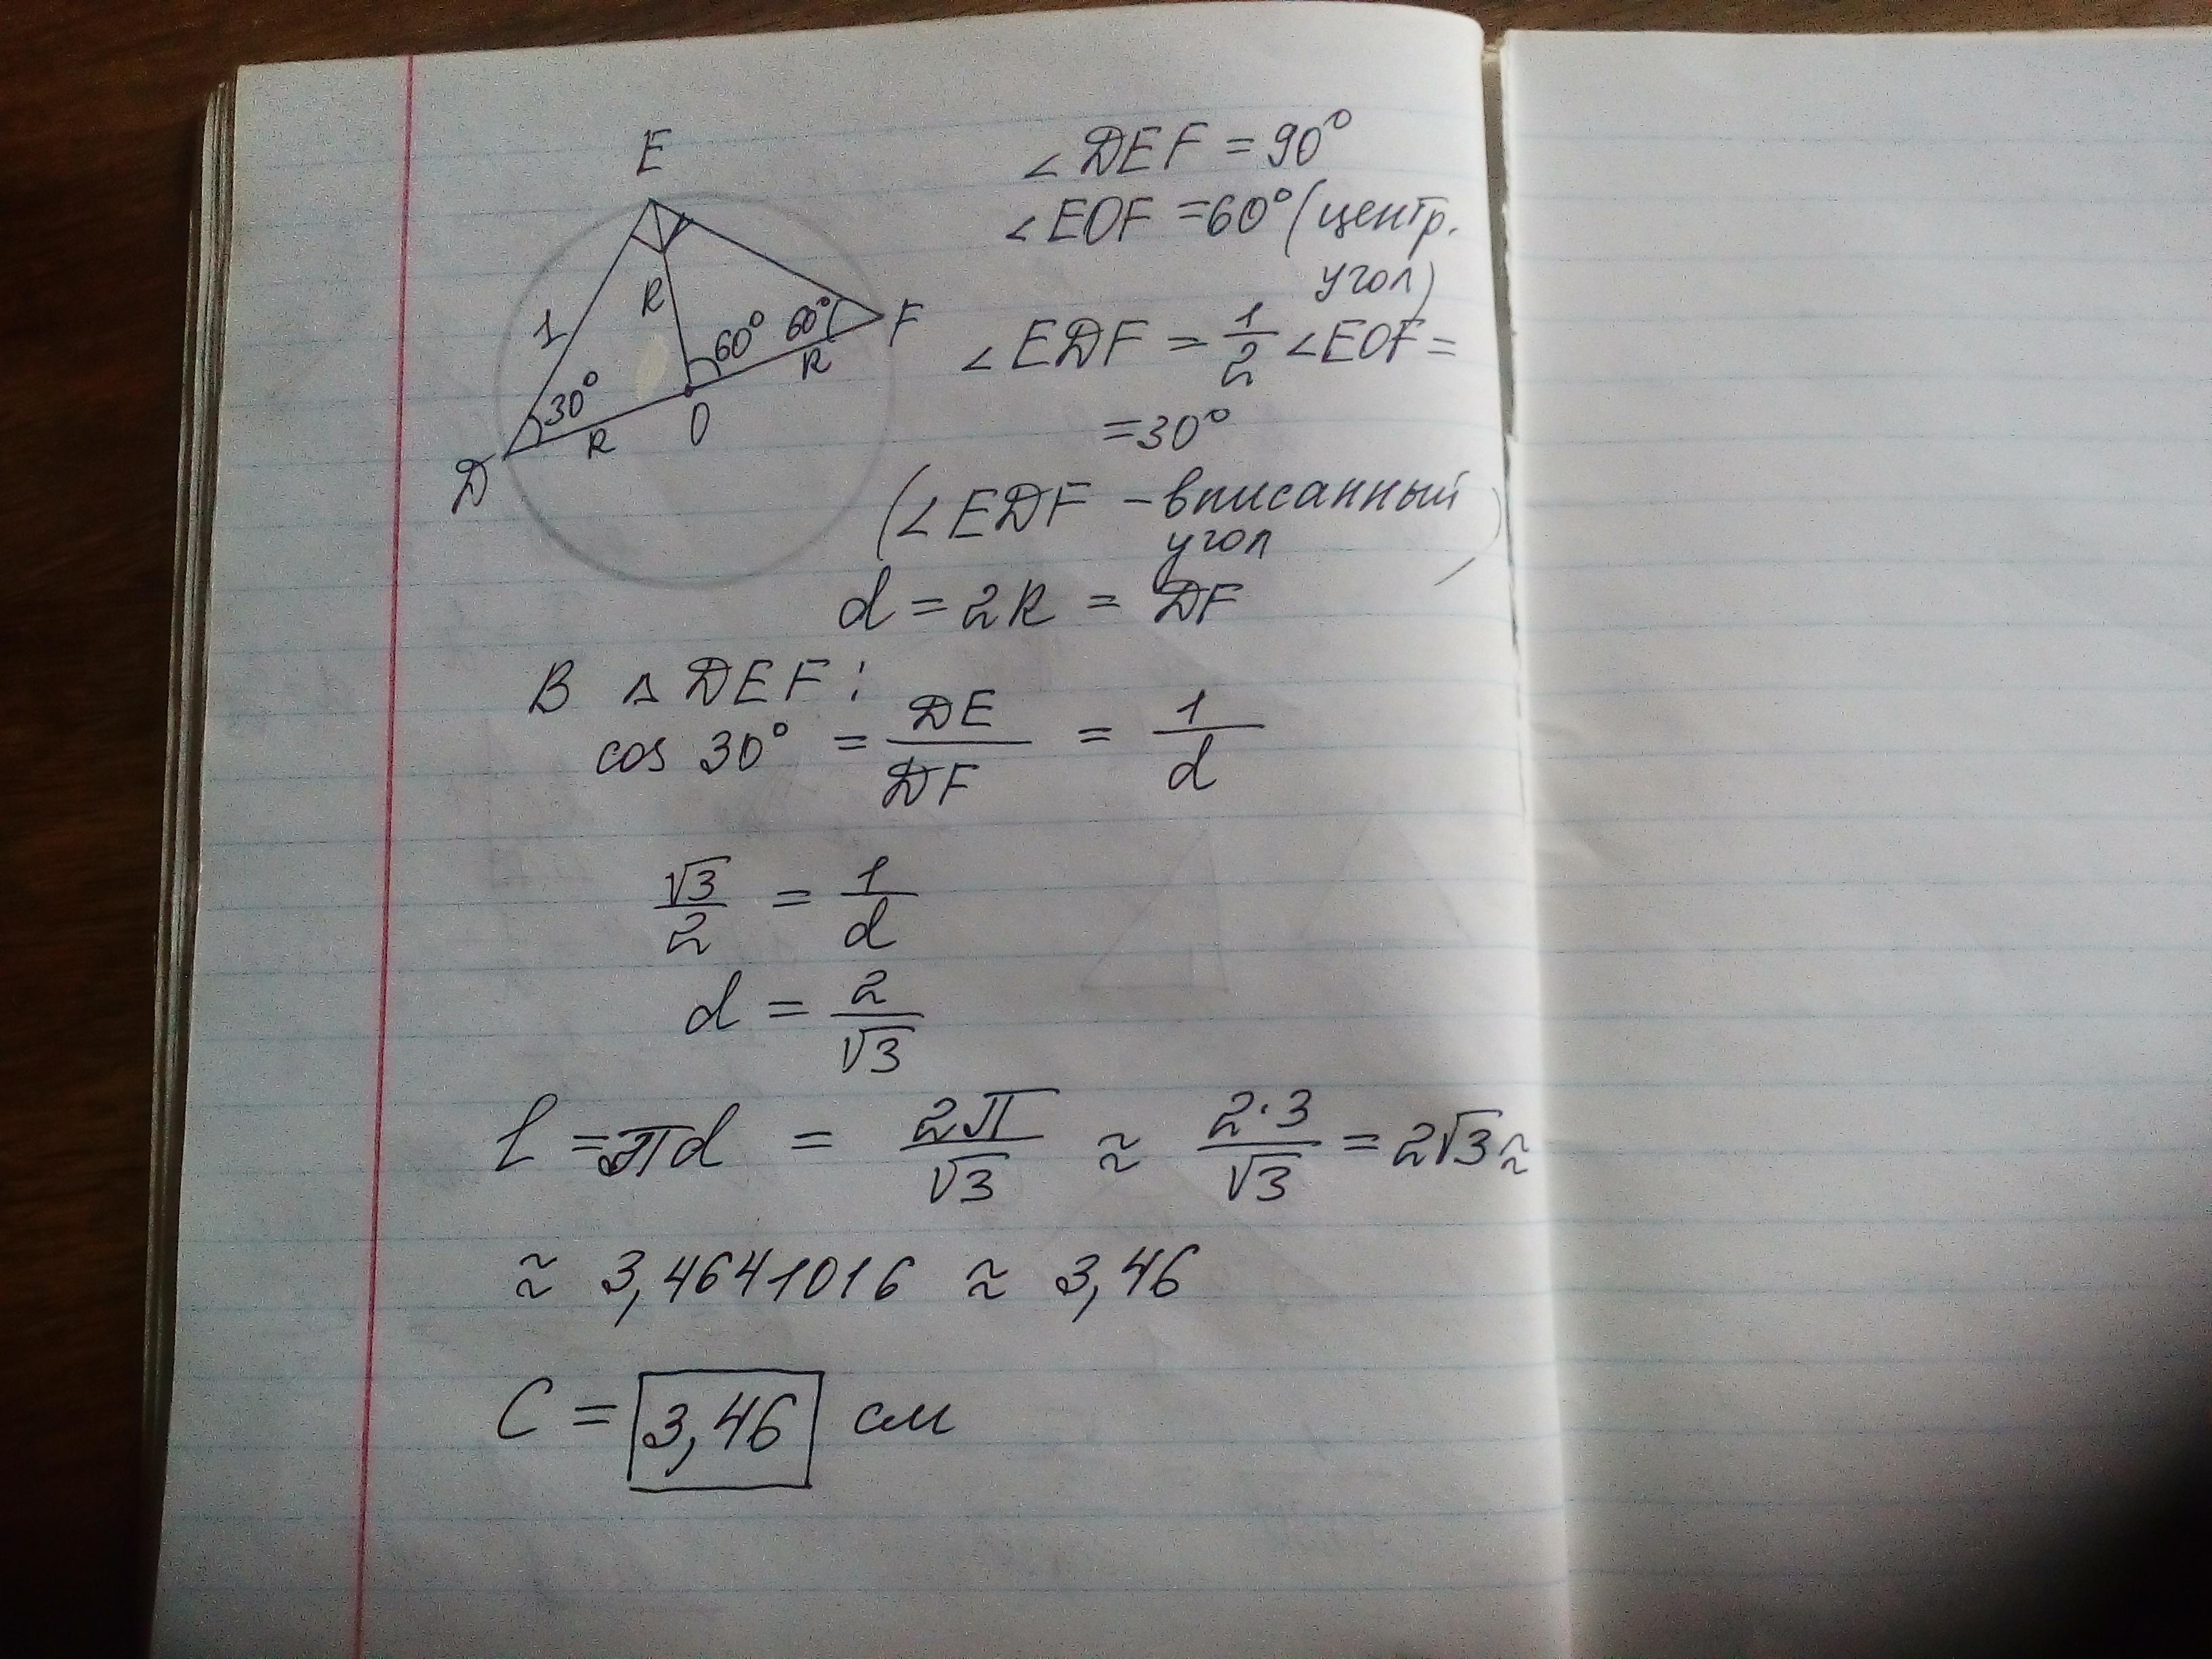 E
1
R
60°
60°
F
30°
R
R
O
D
∠DEF = 90°
∠EOF = 60° (центр.
угол)
∠EDF = 1/2 ∠EOF =
= 30°
(∠EDF - вписанный
угол)
d = 2R = DF
В △DEF:
cos 30° = DE/DF = 1/d
√3/2 = 1/d
d = 2/√3
l = πd = 2π/√3 ≈ 2·3/√3 = 2√3 ≈
≈ 3,4641016 ≈ 3,46
C = 3,46 см